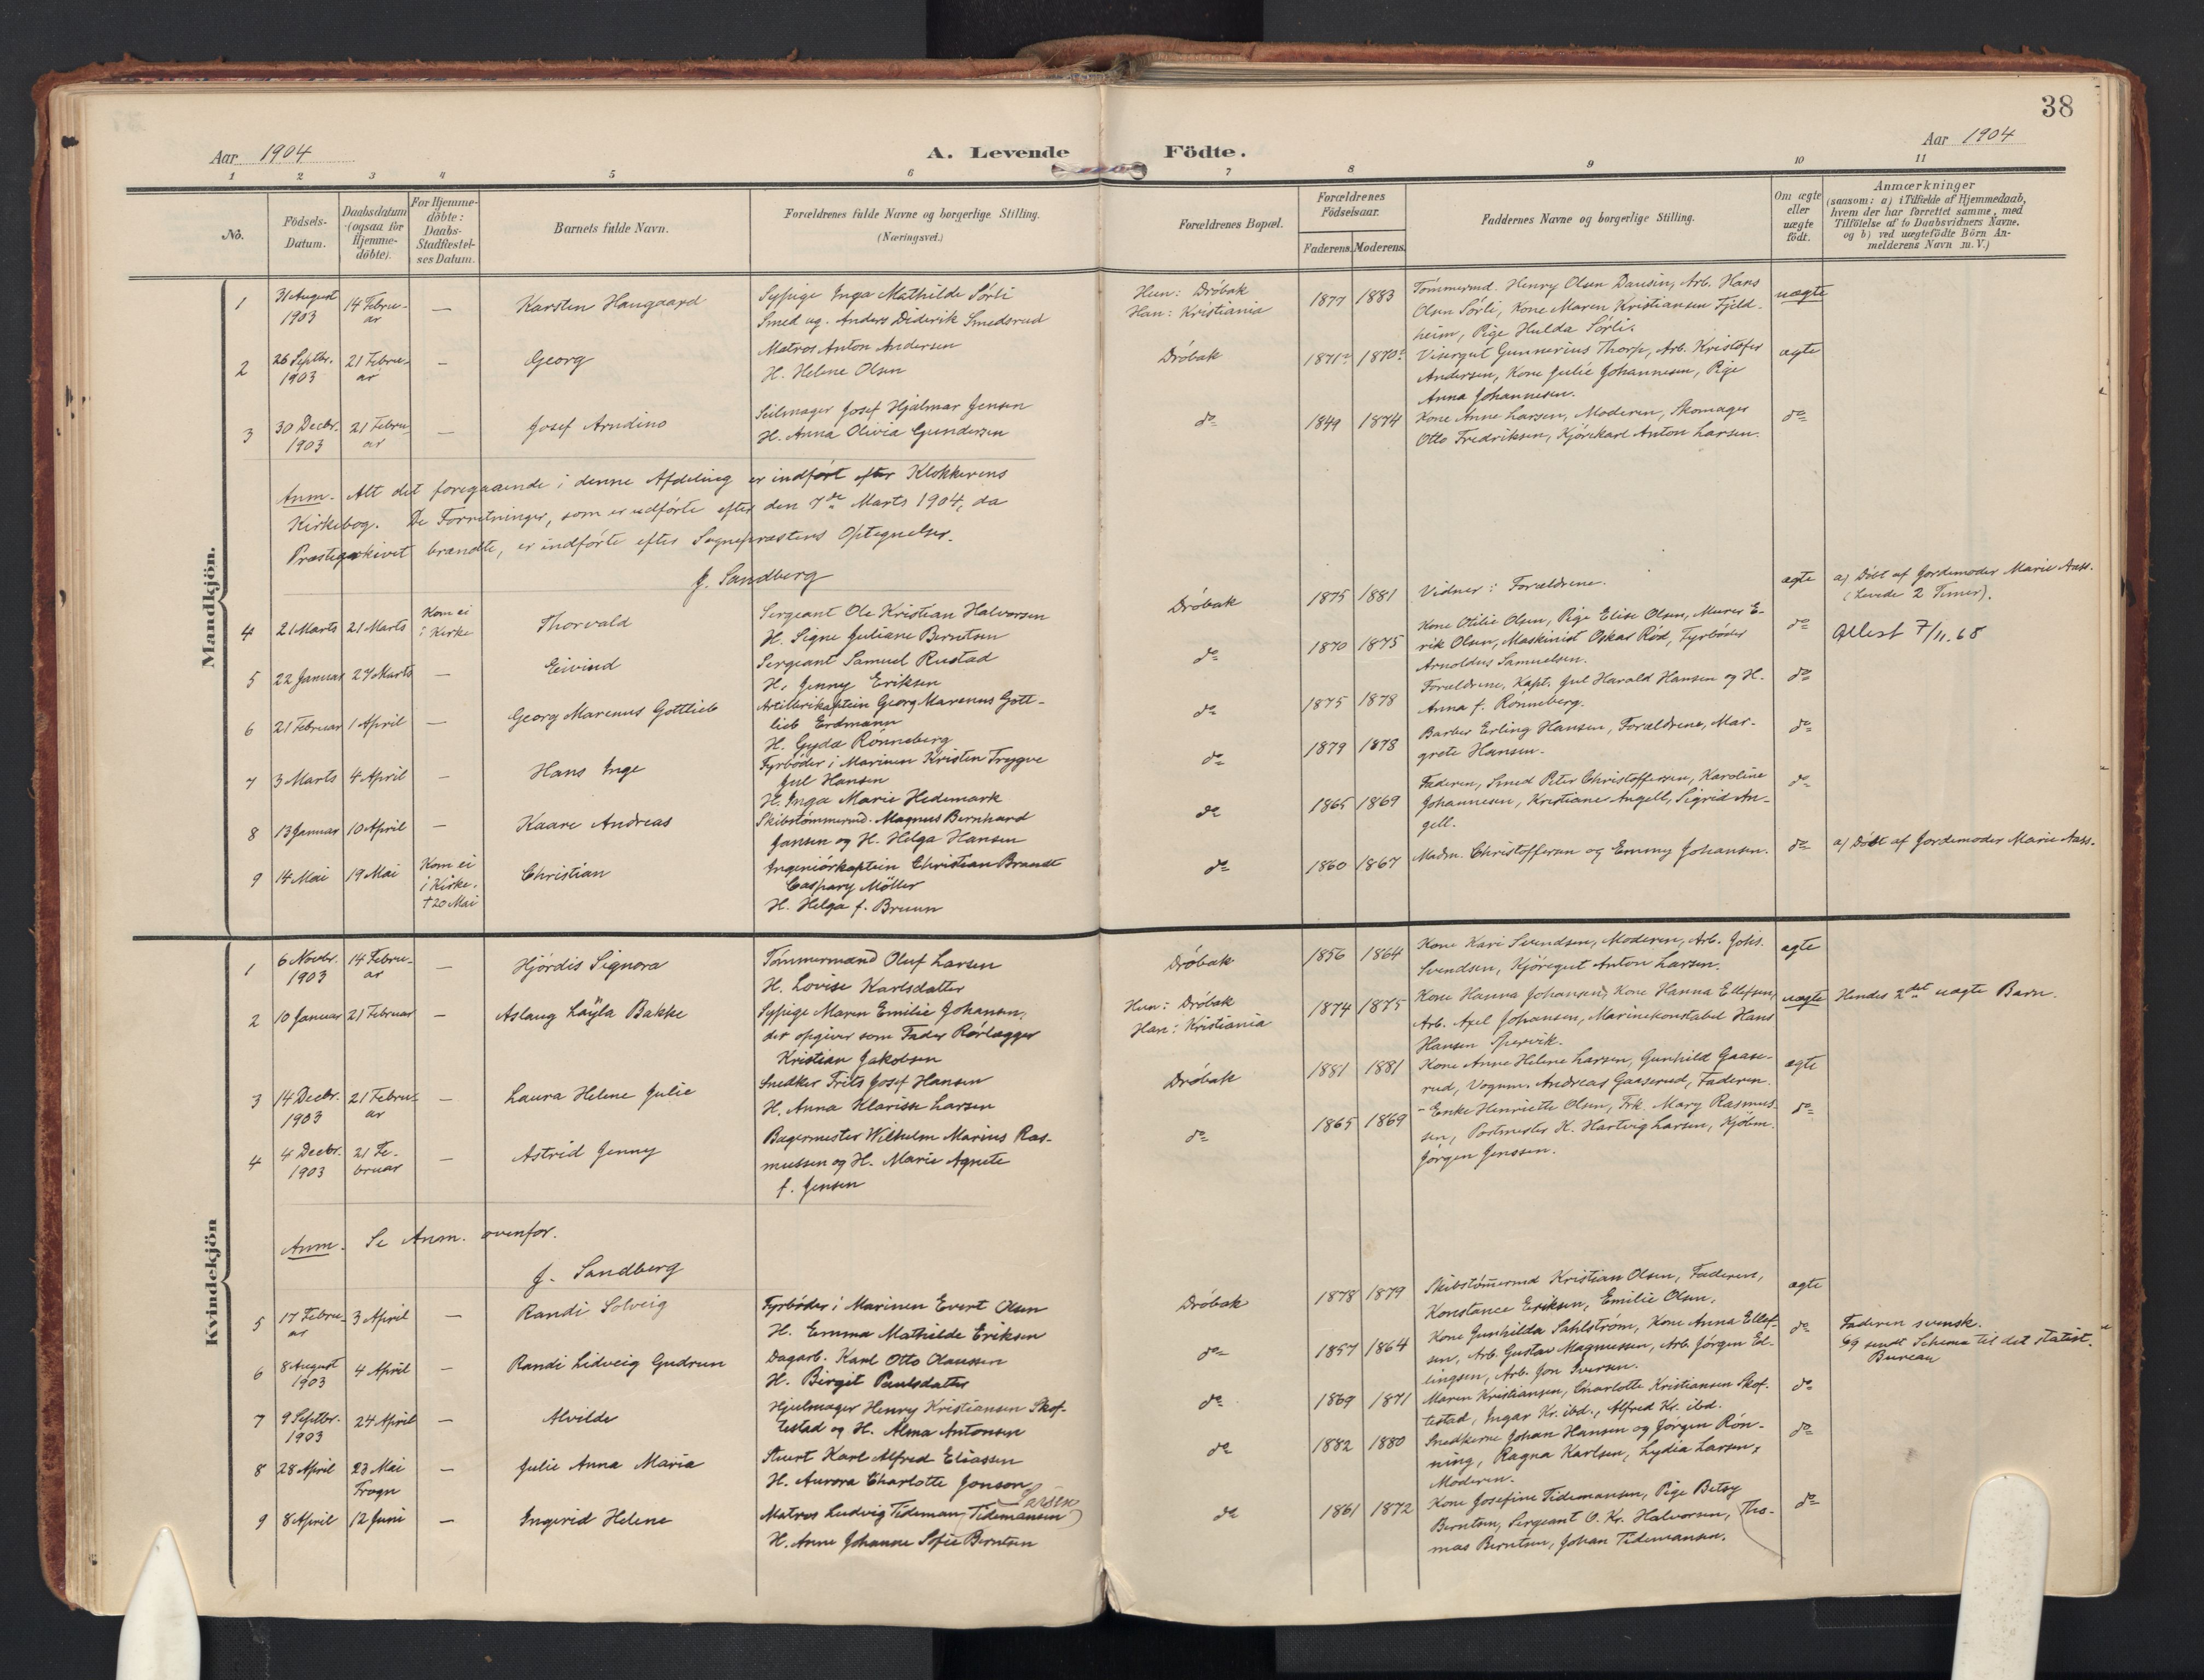 38
Aar 1904
A. Levende Födte.
Aar 1904
1 2 3 4 5 6 7 8 9 10 11
No.
Födsels-
Datum.
Daabsdatum
(ogsaa for
Hjemme-
döbte).
For Hjemme-
döbte:
Daabs-
Stadfæstel-
ses Datum.
Barnets fulde Navn.
Forældrenes fulde Navne og borgerlige Stilling.
(Næringsvei.)
Forældrenes Bopæl.
Forældrenes
Födselsaar.
Faderens. Moderens.
Faddernes Navne og borgerlige Stilling.
Om ægte
eller
uægte
födt.
Anmærkninger
(saasom: a) i Tilfælde af Hjemmedaab,
hvem der har forrettet samme, med
Tilföielse af to Daabsvidners Navne.
og b) ved uægtefödte Börn An-
melderens Navn m. V.)
Mandkjön.
1
31 August
1903
14 Febru-
ar
—
Karsten Haugaard
Sypige Inga Mathilde Sörli
Smed ug. Anders Diderik Smedsrud
Hun: Dröbak
Han: Kristiania
1877 1883
Tömmermd. Henry Olsen Dausin, Arb. Hans
Olsen Sörli, Kone Maren Kristiansen Fjeld-
heim, Pige Hulda Sörli.
uægte
2
26 Septbr.
1903
21 Febru-
ar
—
Georg
Matros Anton Andersen
H. Helene Olsen
Dröbak
1871? 1870?
Visergut Gunnerius Thorp, Arb. Kristofer
Andersen, Kone Julie Johannesen, Pige
Anna Johannesen.
ægte
3
30 Decbr.
1903
21 Febru-
ar
—
Josef Arndino
Seilmager Josef Hjalmar Jensen
H. Anna Olivia Gundersen
do
1849 1874
Kone Anne Larsen, Moderen, Skomager
Otto Fredriksen, Kjörekarl Anton Larsen.
do
Anm. Alt det foregaaende i denne Afdeling er indfört efter Klokkerens
Kirkebog. De Forretninger, som er udförte efter den 7de Marts 1904, da
Præstegaarkivet brændte, er indförte efter Sogneprestens Optegnelser.
J. Sandberg
4
21 Marts 21 Marts
Kom ei
i Kirke
Thorvald
Sergeant Ole Kristian Halvorsen
H. Signe Juliane Berntsen
Dröbak
1875 1881
Vidner: Forældrene.
ægte
a) Döbt af Jordemoder Marie Aass.
(Levede 2 Timer).
5
22 Januar 27 Marts —
Eivind
Sergeant Samuel Rustad
H. Jenny Eriksen
do
1870 1875
Kone Otilie Olsen, Pige Elise Olsen, Murer E-
rik Olsen, Maskinist Oskar Röd, Fyrböder
Arnoldus Samuelsen.
do
Attest 7/11.68
6
21 Februar 1 April —
Georg Marenus Gottlieb
Artillerikaptein Georg Marenus Gott-
lieb Erdmann
H. Gyda Rönneberg
do
1875 1878
Forældrene, Kapt. Jul Harald Hansen og H.
Anna f. Rönneberg.
do
7
3 Marts 4 April —
Hans Inge
Fyrböder i Marinen Kristen Trygve
Jul Hansen
H. Inga Marie Hedemark
do
1879 1878
Barber Erling Hansen, Forældrene, Mar-
grete Hansen.
do
8
13 Januar 10 April —
Kaare Andreas
Skibstömmermd. Magnus Bernhard
Jansen og H. Helga Hansen
do
1865 1869
Faderen, Smed Peter Christoffersen, Karoline
Johannesen, Kristiane Angell, Sigrid An-
gell.
do
9
14 Mai 19 Mai
Kom ei
i Kirke.
†20 Mai
Christian
Ingeniörkaptein Christian Brandt
Caspary Möller
H. Helga f. Bruun
do
1860 1867
Madm. Christoffersen og Emmy Johansen.
do
a) Döbt af Jordemoder Marie Aass.
Kvindekjön
1
6 Novbr.
1903
14 Febru-
ar
—
Hjördis Signora
Tömmermand Oluf Larsen
H. Lovise Karlsdatter
Dröbak
1856 1864
Kone Kari Svendsen, Moderen, Arb. Johs.
Svendsen, Kjöregut Anton Larsen.
ægte
2
10 Januar 21 Februar —
Aslaug Läyla Bakke
Sypige Maren Emilie Johansen,
der opgiver som Fader Rörlægger
Kristian Jakobsen
Hun: Dröbak
Han: Kristiania
1874 1875
Kone Hanna Johansen, Kone Hanna Ellefsen,
Arb. Axel Johansen, Marinekonstabel Hans
Hansen Spervik.
uægte
Hendes 2det uægte Barn.
3
14 Decbr.
1903
21 Febru-
ar
—
Laura Helene Julie
Snedker Frits Josef Hansen
H. Anna Klarisse Larsen
Dröbak
1881 1881
Kone Anne Helene Larsen, Gunhild Gaase-
rud, Vognm. Andreas Gaaserud, Faderen.
ægte
4
4 Decbr.
1903
21 Fe-
bruar
—
Astrid Jenny
Bagermester Wilhelm Marius Ras-
mussen og H. Marie Agnete
f. Jensen
do
1865 1869
Enke Henriette Olsen, Frk. Mary Rasmus-
sen, Postmester K. Hartvig Larsen, Kjöbm.
Jörgen Jenssen.
do
Anm. Se Anm. ovenfor.
J. Sandberg
5
17 Febru-
ar
3 April —
Randi Solveig
Fyrböder i Marinen Evert Olsen
H. Emma Mathilde Eriksen
Dröbak
1878 1879
Skibstömermd Kristian Olsen, Faderen,
Konstance Eriksen, Emilie Olsen.
ægte
6
8 August
1903
4 April —
Randi Lidveig Gudrun
Dagarb. Karl Otto Claussen
H. Birgit Paulsdatter
do
1857 1864
Kone Gunhilda Sahlström, Kone Anna Ellef-
sen, Arb. Gustav Magnussen, Arb. Jörgen Ed-
lingsen, Arb. Jon Iversen.
do
Faderen svensk.
sendt Schema til det statist.
Bureau
7
9 Septbr.
1903
24 April —
Alvilde
Hjulmager Henry Kristiansen Skof-
testad og H. Alma Antonsen
do
1869 1871
Maren Kristiansen, Charlotte Kristiansen Skof-
testad, Ingar Kr. ibd., Alfred Kr. ibd.
do
8
28 April
23 Mai
Frogn
—
Julie Anna Maria
Stuert Karl Alfred Eliassen
H. Aurora Charlotte Jonson
do
1882 1880
Snedkerne Johan Hansen og Jörgen Rön-
ning, Ragna Karlsen, Lydia Larsen,
Moderen.
do
9
8 April 12 Juni —
Ingerid Helene
Larsen
Matros Ludvig Tideman (Tidemansen)
H. Anne Johanne Sofie Berntsen
do
1861 1872
Kone Josefine Tidemansen, Pige Betsy
Berntsen, Sergeant O. Kr. Halvorsen, Tho-
mas Berntsen, Johan Tidemansen.
do